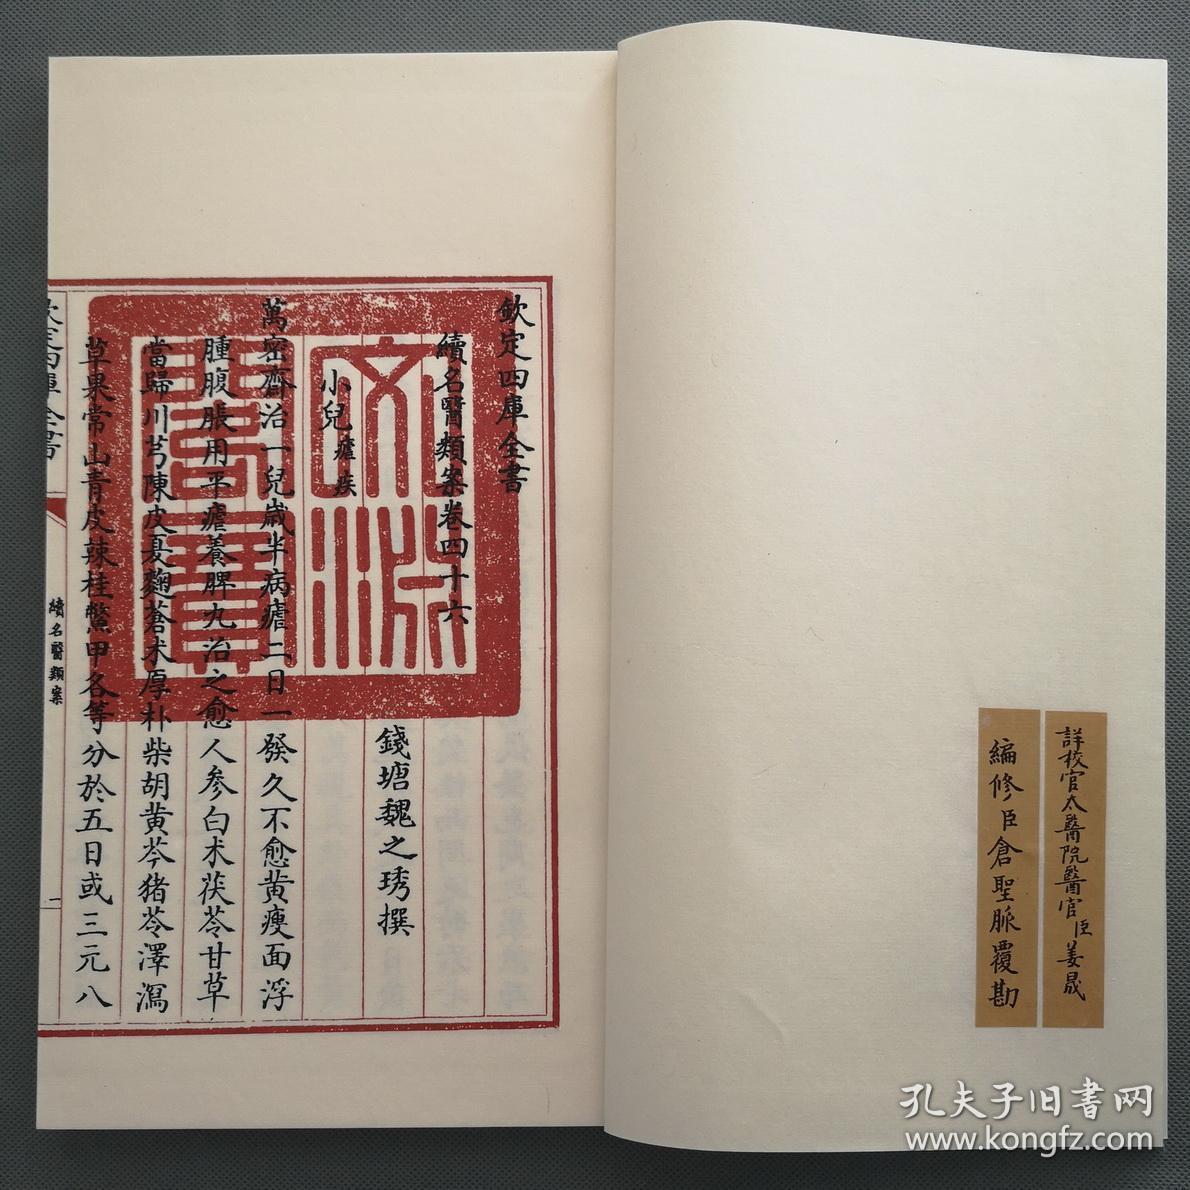 詳校官太醫院醫官臣姜晟
編修臣倉聖脈覆勘
欽定四庫全書
續名醫類案卷四十六
錢塘魏之琇撰
小兒瘧疾
萬密齋治一兒歲半病瘧二日一發久不愈黃瘦面浮
腫腹脹用平瘧養脾丸治之愈人參白朮茯苓甘草
當歸川芎陳皮夏麴蒼朮厚朴柴胡黃芩猪苓澤瀉
草果常山青皮辣桂鱉甲各等分於五日或三元八
欽定四庫全書
續名醫類案
一
文淵閣寶
孔夫子旧书网
www.kongfz.com